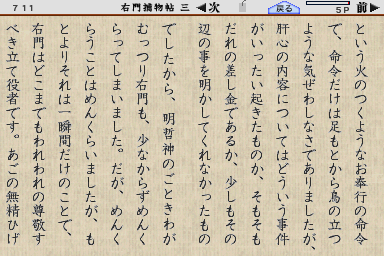 711
右門捕物帖 三
次
戻る
5P
前
という火のつくようなお奉行の命令
で、命令だけは足もとから鳥の立つ
ような気ぜわしなさでありましたが、
肝心の内容についてはどういう事件
がいったい起きたものか、そもそも
だれの差し金であるか、少しもその
辺の事を明かしてくれなかったもの
でしたから、明哲神のごときわが
むっつり右門も、少なからずめんく
らってしまいました。だが、めんく
らうことはめんくらいましたが、も
とよりそれは一瞬間だけのことで、
右門はどこまでもわれわれの尊敬す
べき立て役者です。あごの無精ひげ